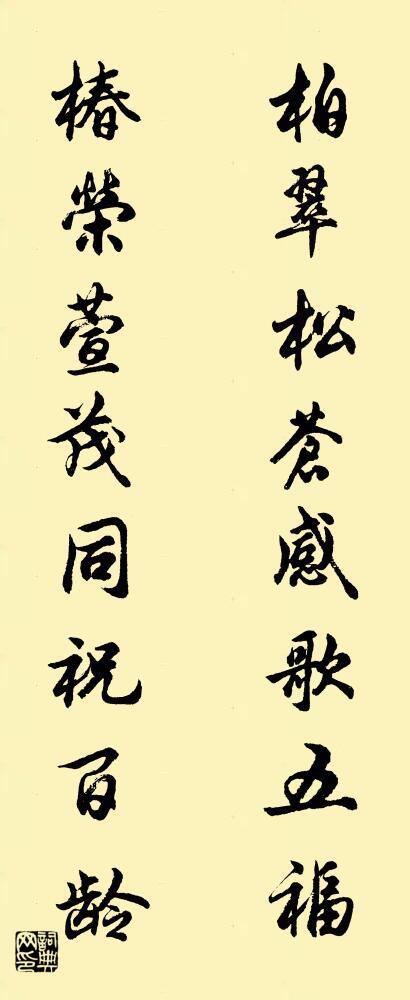 柏翠松苍感歌五福
椿荣萱茂同祝百龄
词典网印